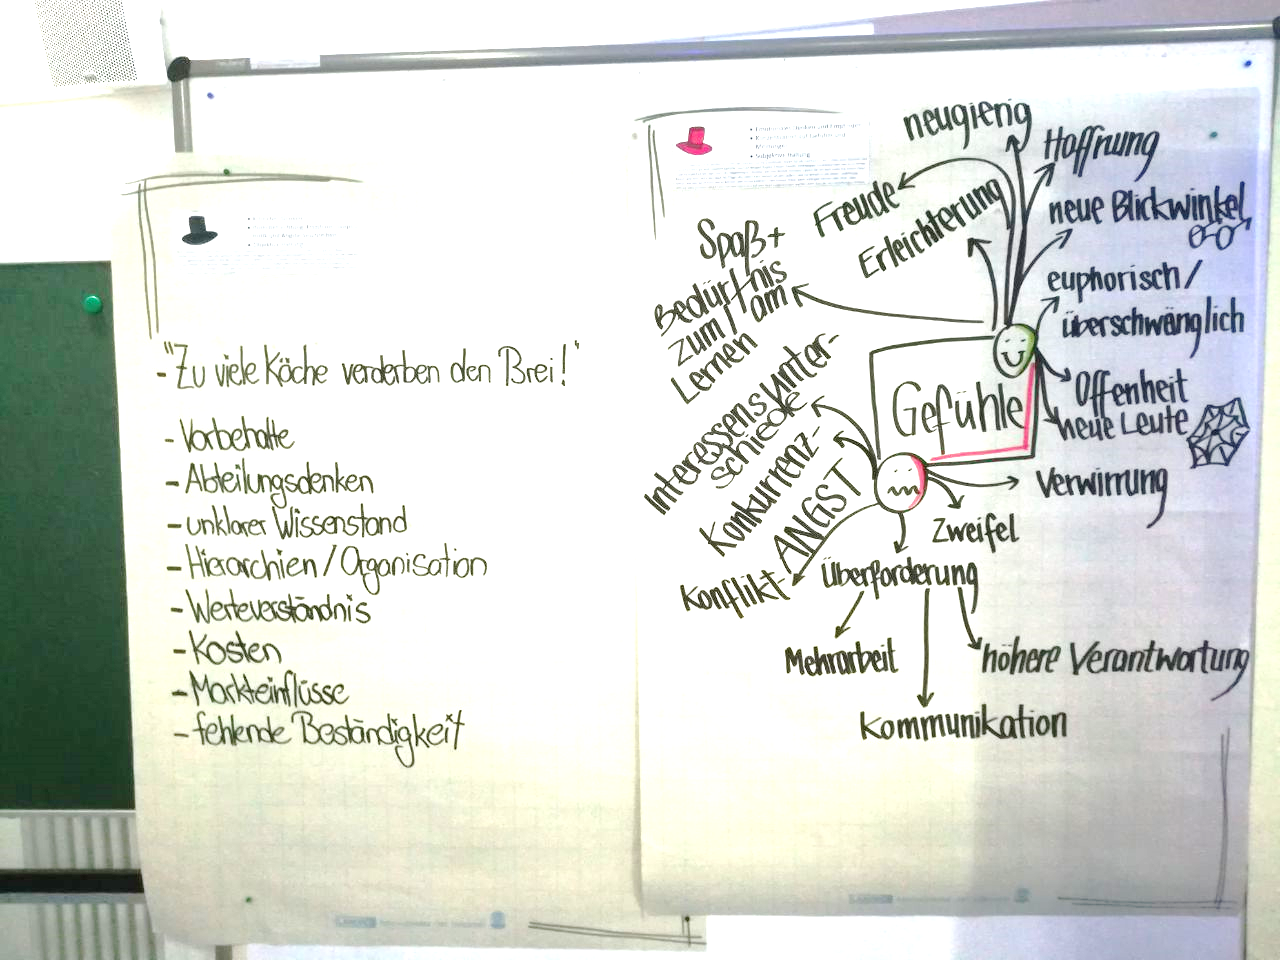 - "Zu viele Köche verderben den Brei!"
- Vorbehalte
- Abteilungsdenken
- unklarer Wissenstand
- Hierarchien / Organisation
- Werteverständnis
- Kosten
- Markteinflüsse
- fehlende Beständigkeit
neugierig
Hoffnung
Freude
Erleichterung
neue Blickwinkel
Spaß +
Bedürfnis
zum / am
Lernen
euphorisch /
überschwänglich
Gefühle
Offenheit
neue Leute
Interessensunter-
schiede
Konkurrenz-
ANGST
Konflikt-
Verwirrung
Zweifel
Überforderung
Mehrarbeit
höhere Verantwortung
Kommunikation